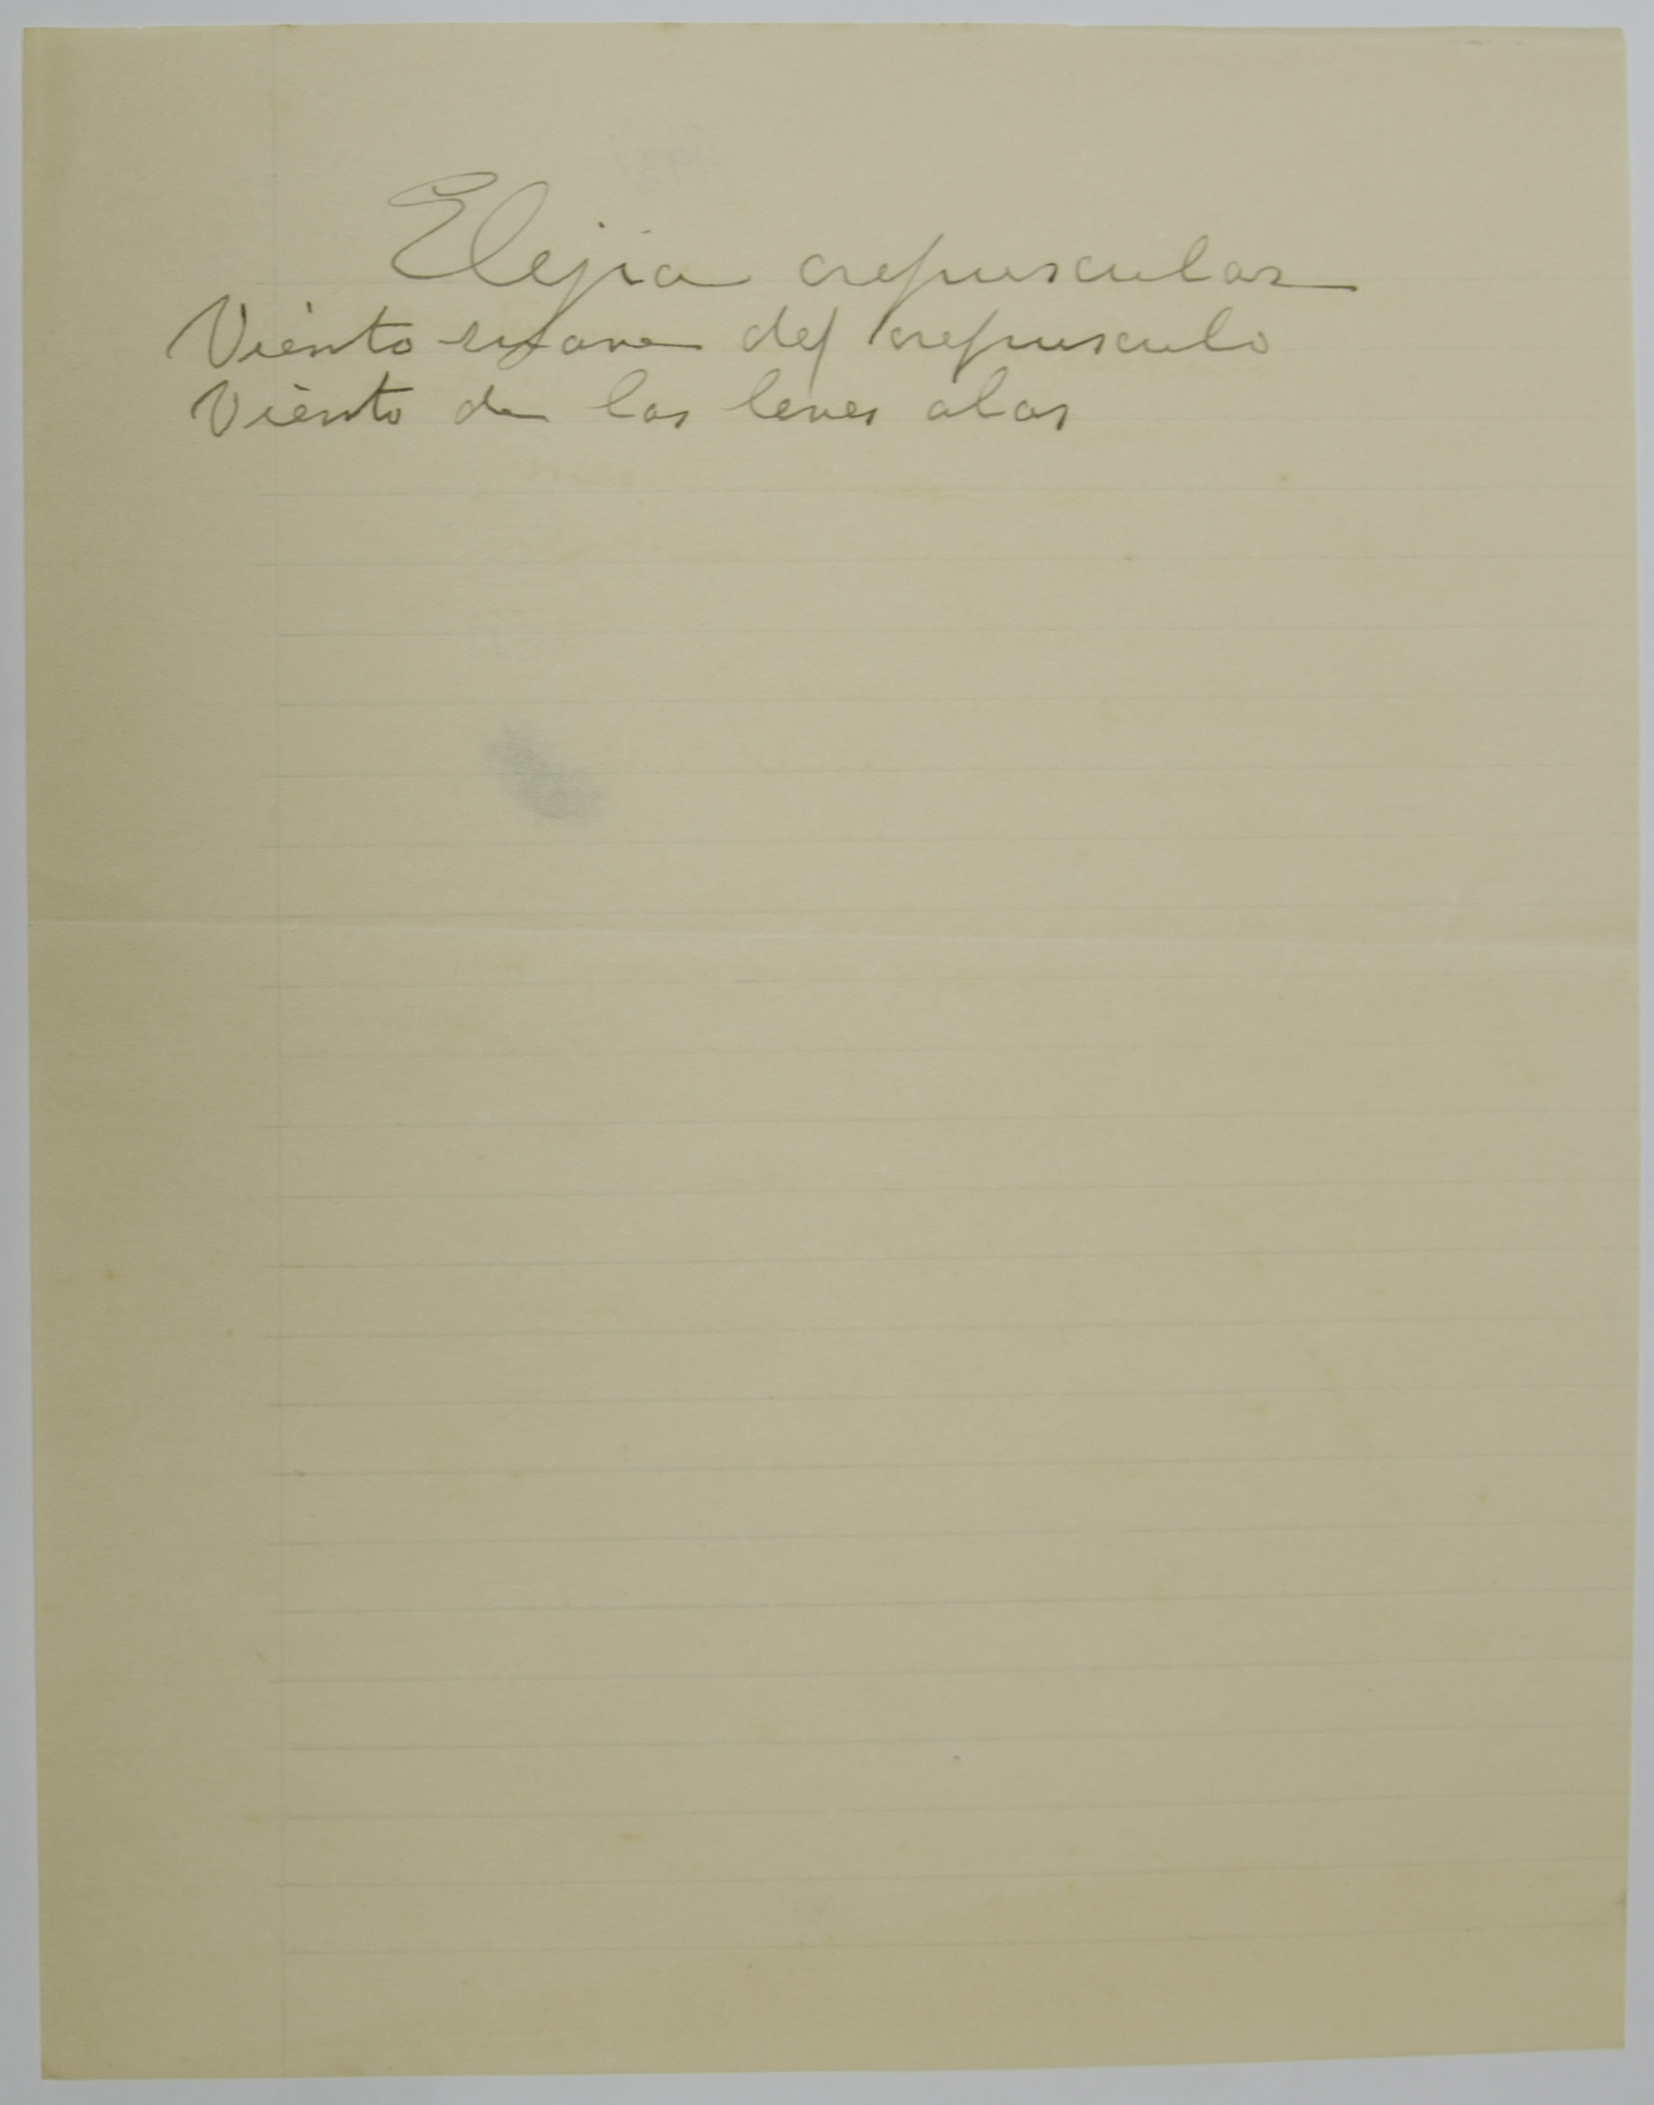 Elejia crepuscular
Viento suave del crepusculo
Viento de las leves alas